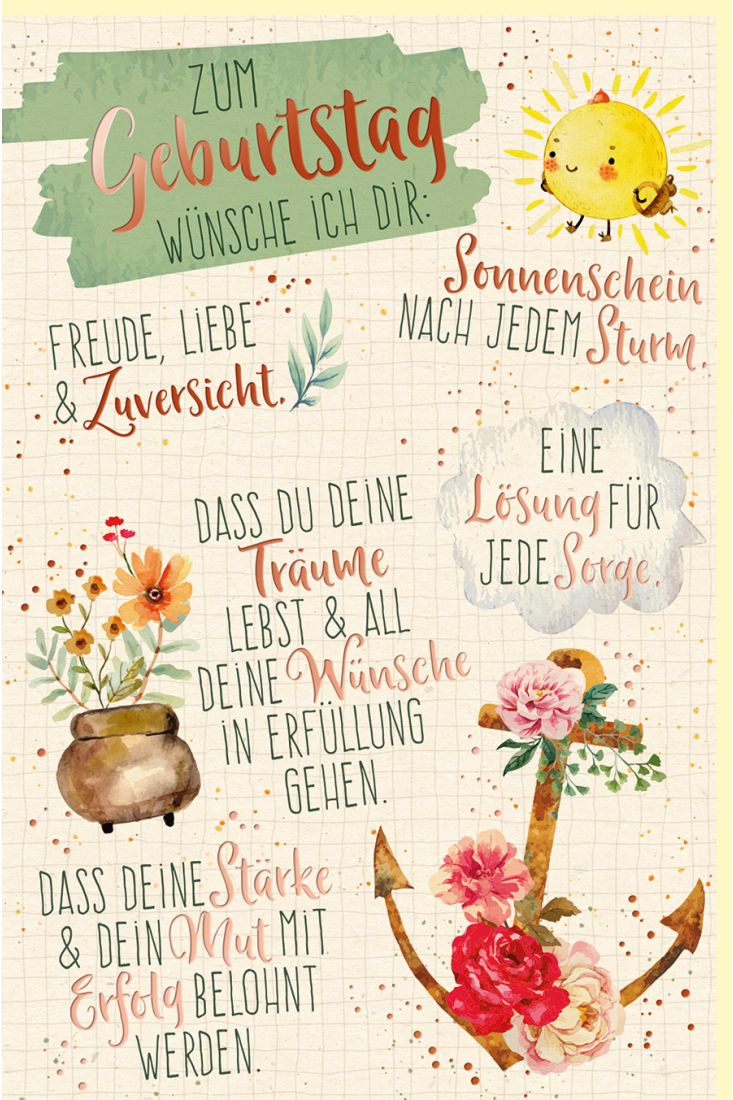 ZUM
Geburtstag
WÜNSCHE ICH DIR:
Sonnenschein
NACH JEDEM Sturm.
FREUDE, LIEBE
& Zuversicht.
EINE
Lösung FÜR
JEDE Sorge.
DASS DU DEINE
Träume
LEBST & ALL
DEINE Wünsche
IN ERFÜLLUNG
GEHEN.
DASS DEINE Stärke
& DEIN Mut MIT
Erfolg BELOHNT
WERDEN.